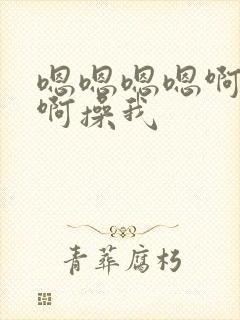 嗯嗯嗯嗯啊
啊操我
青葬腐朽